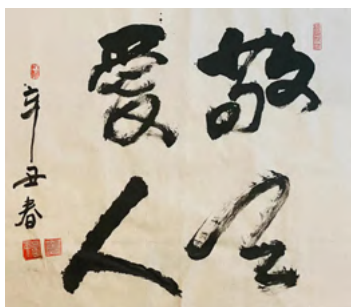 敬天
愛人
辛丑春